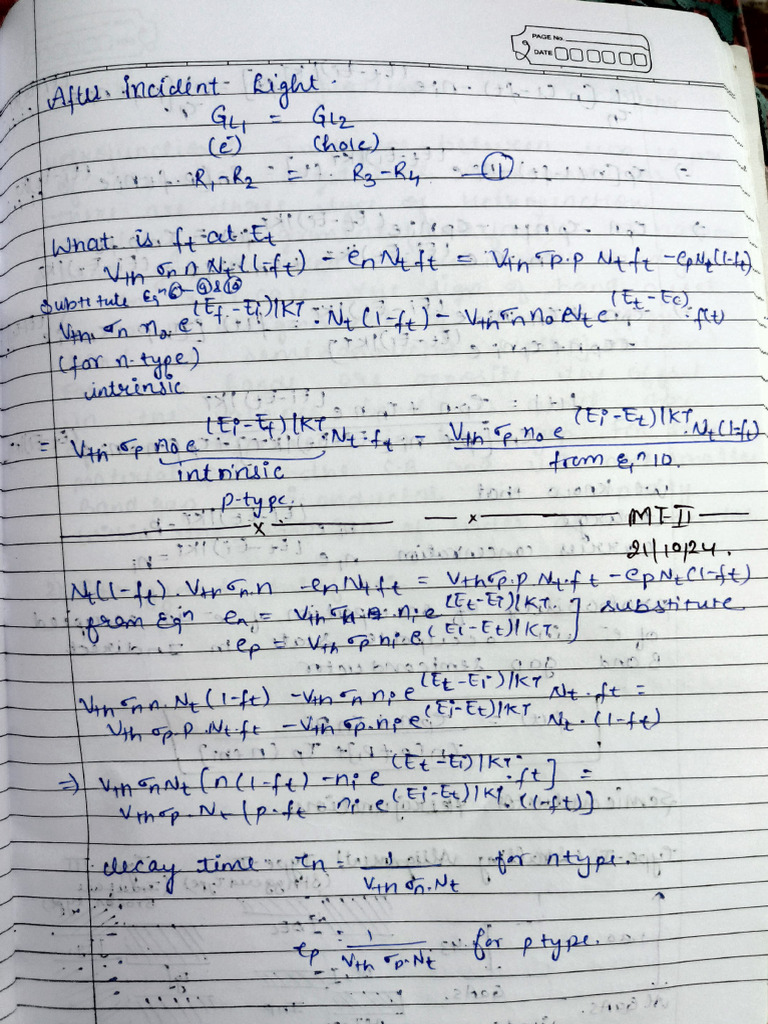 PAGE No.
DATE
After Incident Light.
GL1 = GL2
(e⁻) (hole)
R1-R2 = R3-R4 — (11)
What is ft at Et
Vth σn n Nt(1-ft) - en Nt ft = Vth σp.p Nt ft - ep Nt(1-ft)
Substitute Eqⁿ
Vth. σn no e^(Ef-Ei)/KT . Nt(1-ft) - Vth σn no e^(Et-Ec) . f(t)
(for n-type)
intrinsic
= Vth σp no e^(Ei-Ef)/KT . Nt. ft = Vth σp. no e^(Ei-Et)/KT . Nt(1-ft)
intrinsic from Eqⁿ 10.
p-type.
x x MT-II
21/10/24.
Nt(1-ft). Vth σn.n - en Nt ft = Vth σp.p Nt.ft - ep Nt(1-ft)
from Eqⁿ en = Vth σn ni e^(Et-Ei)/KT. ] substitute
ep = Vth σp ni e^(Ei-Et)/KT.
Vth σn n. Nt(1-ft) - Vth σn ni e^(Et-Ei)/KT Nt. ft =
Vth σp.p.Nt.ft - Vth σp.ni e^(Ei-Et)/KT Nt.(1-ft)
⇒ Vth σn Nt [n(1-ft) - ni e^(Et-Ei)/KT . ft] =
Vth σp. Nt [p.ft - ni e^(Ei-Et)/KT. (1-ft)]
decay time τn = 1/(Vth σn.Nt) for n type.
τp = 1/(Vth σp.Nt) for p type.